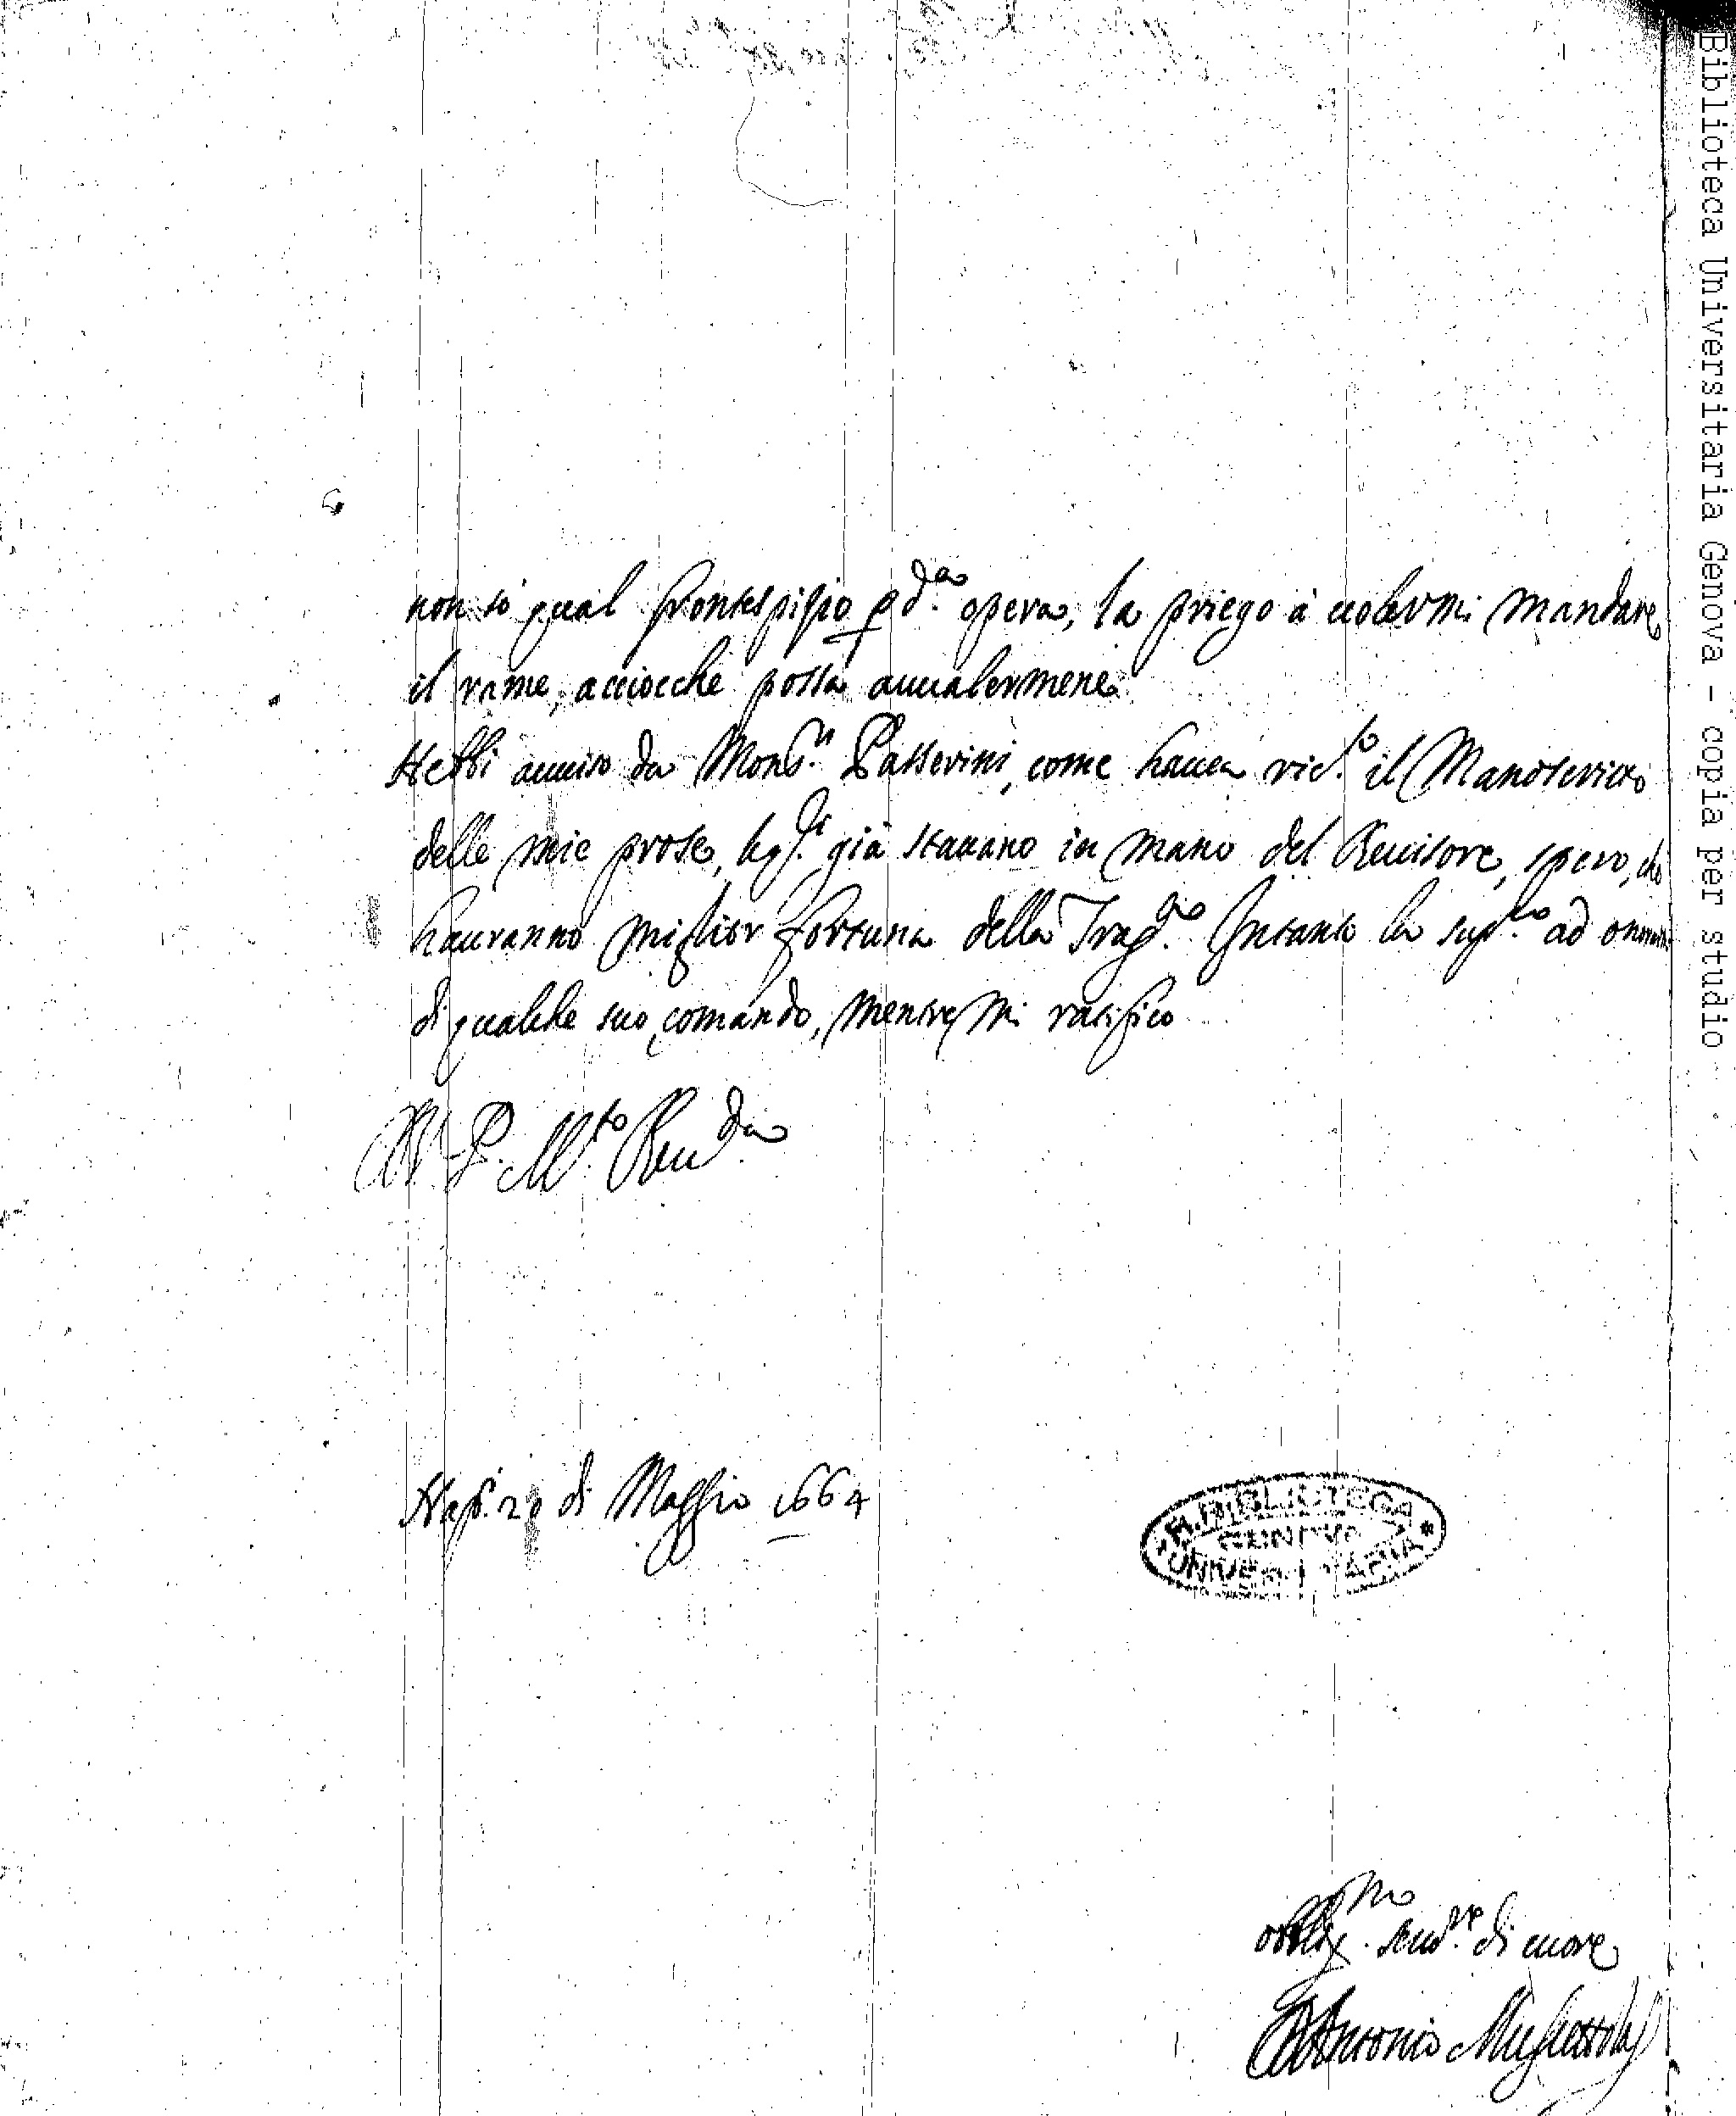 non sò qual frontespizio p d.ª opera, la priego à uolermi mandare
il rame, acciocche possa auualermene.
Hebbi auuiso da Mons.r Passerini, come hauea ric.to il Manoscritto
delle mie prose, le q.li già stauano in mano del Reuisore, spero, che
hauranno miglior fortuna della Trag.a Intanto la sup.co ad
di qualche suo comando, mentre mi ratifico
D. V. P. M.to Reu.da
Nap. 20 di Maggio 1664
R. BIBLIOTECA
UNIVERSITARIA
obblig.mo seru.re di cuore
Antonio Muscettola
Biblioteca Universitaria Genova - copia per studio